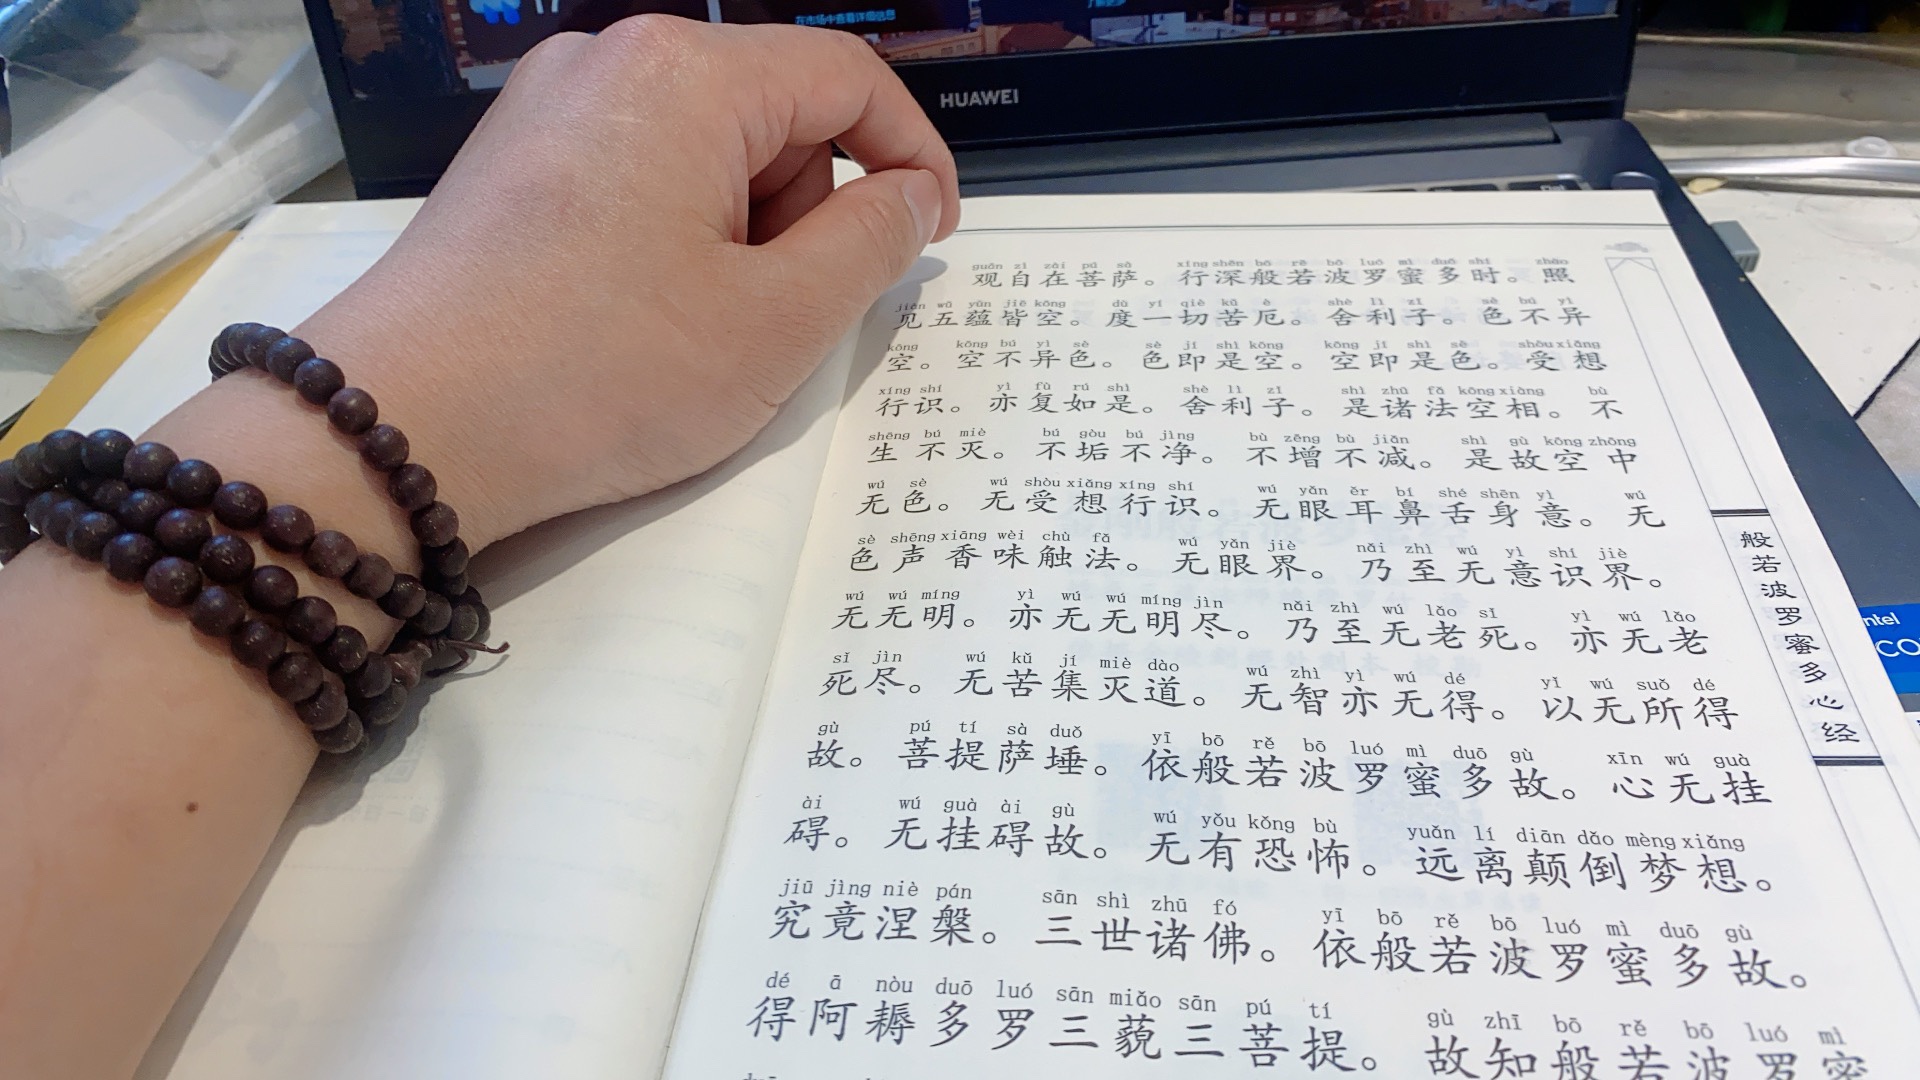 17
在市场中查看详细信息
了解更多
HUAWEI
guān zì zài pú sà xíng shēn bō rě bō luó mì duō shí zhào
观自在菩萨。行深般若波罗蜜多时。照
jiàn wǔ yùn jiē kōng dù yí qiè kǔ è shè lì zǐ sè bú yì
见五蕴皆空。度一切苦厄。舍利子。色不异
kōng kōng bú yì sè sè jí shì kōng kōng jí shì sè shòu xiǎng
空。空不异色。色即是空。空即是色。受想
xíng shí yì fù rú shì shè lì zǐ shì zhū fǎ kōng xiàng bù
行识。亦复如是。舍利子。是诸法空相。不
shēng bú miè bú gòu bú jìng bù zēng bù jiǎn shì gù kōng zhōng
生不灭。不垢不净。不增不减。是故空中
wú sè wú shòu xiǎng xíng shí wú yǎn ěr bí shé shēn yì wú
无色。无受想行识。无眼耳鼻舌身意。无
sè shēng xiāng wèi chù fǎ wú yǎn jiè nǎi zhì wú yì shí jiè
色声香味触法。无眼界。乃至无意识界。
wú wú míng yì wú wú míng jìn nǎi zhì wú lǎo sǐ yì wú lǎo
无无明。亦无无明尽。乃至无老死。亦无老
sǐ jìn wú kǔ jí miè dào wú zhì yì wú dé yǐ wú suǒ dé
死尽。无苦集灭道。无智亦无得。以无所得
gù pú tí sà duǒ yī bō rě bō luó mì duō gù xīn wú guà
故。菩提萨埵。依般若波罗蜜多故。心无挂
ài wú guà ài gù wú yǒu kǒng bù yuǎn lí diān dǎo mèng xiǎng
碍。无挂碍故。无有恐怖。远离颠倒梦想。
jiū jìng niè pán sān shì zhū fó yī bō rě bō luó mì duō gù
究竟涅槃。三世诸佛。依般若波罗蜜多故。
dé ā nòu duō luó sān miǎo sān pú tí gù zhī bō rě bō luó mì
得阿耨多罗三藐三菩提。故知般若波罗蜜
般若波罗蜜多心经
intel
CO